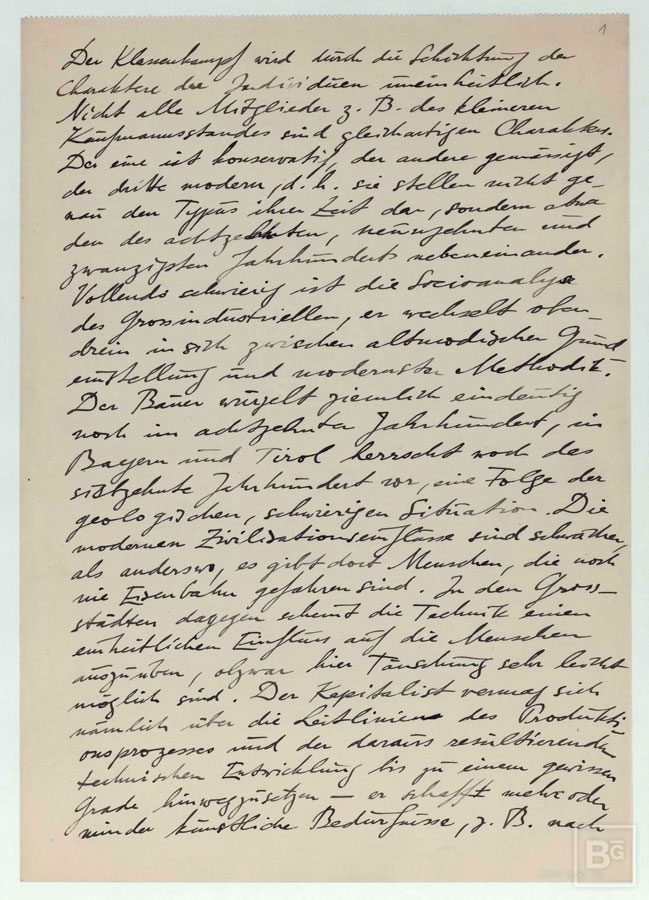 1
Der Klassenkampf wird durch die Schichtung der
Charaktere der Individuen uneinheitlich.
Nicht alle Mitglieder z. B. des kleineren
Kaufmannsstandes sind gleichartigen Charakters.
Der eine ist konservativ, der andere gemässigt,
der dritte modern, d. h. sie stellen nicht ge-
nau den Typus ihrer Zeit dar, sondern etwa
den des achtzehnten, neunzehnten und
zwanzigsten Jahrhunderts nebeneinander.
Vollends schwierig ist die Socioanalyse
des Grossindustriellen, er wechselt oben-
drein in sich zwischen altmodischer Grund
einstellung und modernster Methodik.
Der Bauer wurzelt ziemlich eindeutig
noch im achtzehnten Jahrhundert, in
Bayern und Tirol herrscht noch das
siebzehnte Jahrhundert vor, eine Folge der
geologischen, schwierigen Situation. Die
modernen Zivilisationseinflüsse sind schwächer,
als anderswo, es gibt dort Menschen, die noch
nie Eisenbahn gefahren sind. In den Gross-
städten dagegen scheint die Technik einen
einheitlichen Einfluss auf die Menschen
auszuüben, obzwar hier Täuschung sehr leicht
möglich sind. Der Kapitalist vermag sich
nämlich über die Leitlinien des Produkti-
onsprozesses und der daraus resultierenden
technischen Entwicklung bis zu einem gewissen
Grade hinwegzusetzen — er schafft mehr oder
minder künstliche Bedürfnisse, z. B. nach
BG